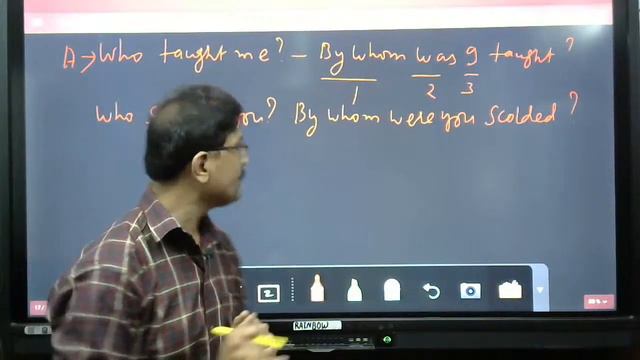 A → Who taught me? - By whom was I taught?
1 2 3
Who you? By whom were you scolded?
RAINBOW